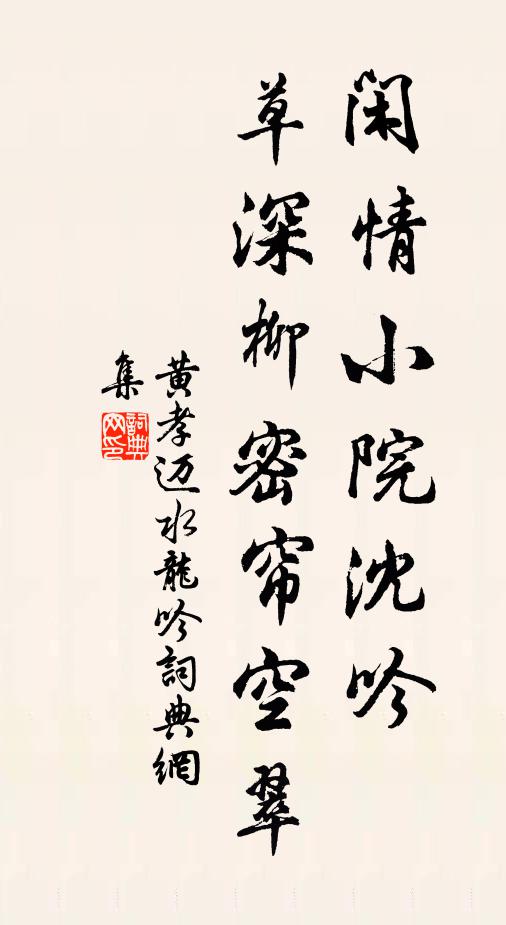 闲情小院沈吟
草深柳密帘空翠
黄孝迈水龍吟詞典網
集
詞典网印